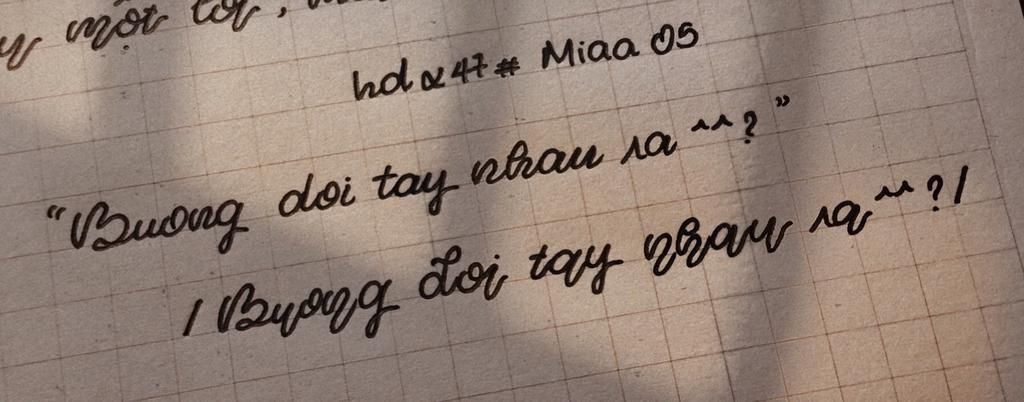 một
hd α 47 # Miaa 05
“Buong doi tay nhau ra ^^ ? ”
/ Buong đoi tay nhau ra ^^ ? /